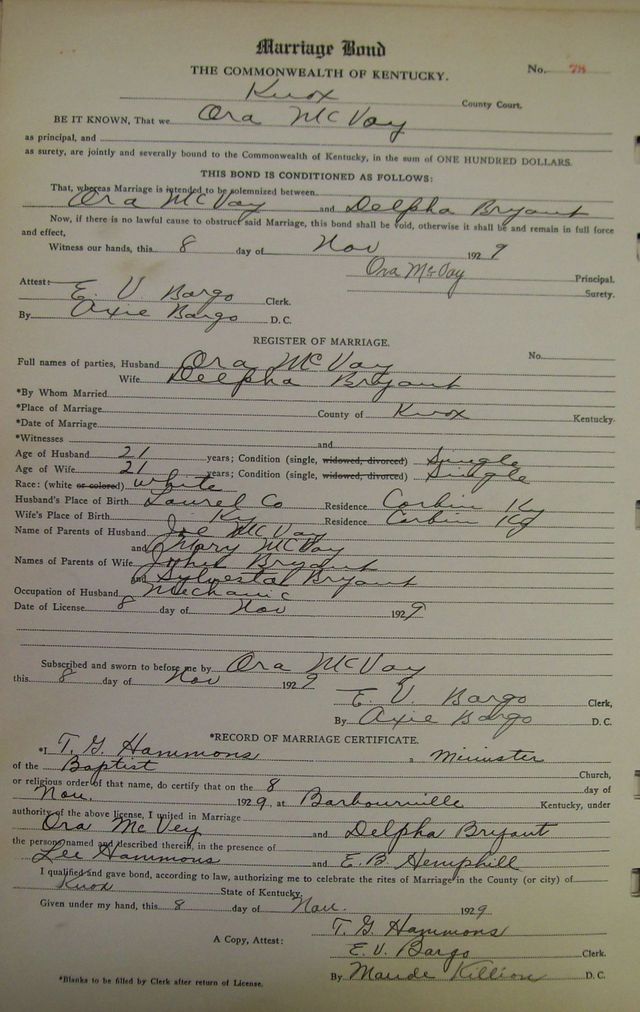 Marriage Bond
THE COMMONWEALTH OF KENTUCKY. No. 78
Knox County Court.
BE IT KNOWN, That we Ora McVay
as principal, and
as surety, are jointly and severally bound to the Commonwealth of Kentucky, in the sum of ONE HUNDRED DOLLARS.
THIS BOND IS CONDITIONED AS FOLLOWS:
That, whereas Marriage is intended to be solemnized between
Ora McVay and Delpha Bryant
Now, if there is no lawful cause to obstruct said Marriage, this bond shall be void, otherwise it shall be and remain in full force
and effect,
Witness our hands, this 8 day of Nov 1929
Ora McVay Principal.
Attest: E. V. Bargo Clerk. Surety.
By Axie Bargo D. C.
REGISTER OF MARRIAGE.
Full names of parties, Husband Ora McVay No.
Wife Delpha Bryant
*By Whom Married
*Place of Marriage County of Knox Kentucky
*Date of Marriage
*Witnesses and
Age of Husband 21 years; Condition (single, widowed, divorced) Single
Age of Wife 21 years; Condition (single, widowed, divorced) Single
Race: (white or colored) white
Husband's Place of Birth Laurel Co Residence Corbin Ky
Wife's Place of Birth Ky Residence Corbin Ky
Name of Parents of Husband Joe McVay
and Mary McVay
Names of Parents of Wife John Bryant
and Sylvesta Bryant
Occupation of Husband Mechanic
Date of License 8 day of Nov 1929
Subscribed and sworn to before me by Ora McVay
this 8 day of Nov 1929
E. V. Bargo Clerk,
By Axie Bargo D. C.
*RECORD OF MARRIAGE CERTIFICATE.
*I T. G. Hammons a Minister
of the Baptist Church,
or religious order of that name, do certify that on the 8 day of
Nov. 1929, at Barbourville Kentucky, under
authority of the above license, I united in Marriage
Ora McVey and Delpha Bryant
the persons named and described therein, in the presence of
Lee Hammons and E. B. Hemphill
I qualified and gave bond, according to law, authorizing me to celebrate the rites of Marriage in the County (or city) of
Knox State of Kentucky.
Given under my hand, this 8 day of Nov. 1929
T. G. Hammons
A Copy, Attest: E. V. Bargo Clerk.
*Blanks to be filled by Clerk after return of License. By Maude Killion D. C.